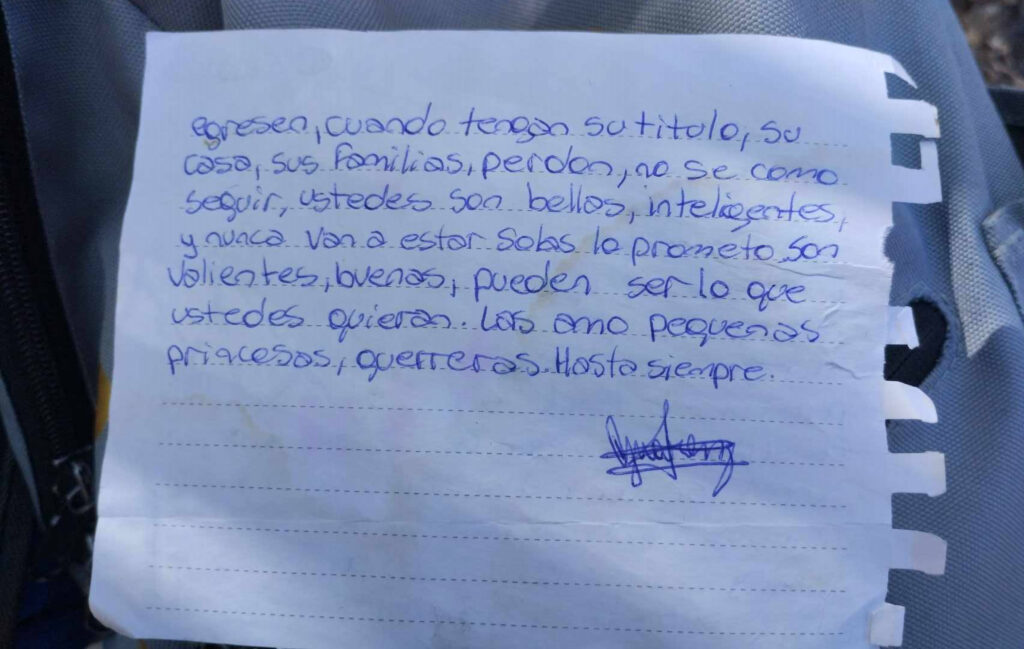 egresen, cuando tengan su titulo, su
casa, sus familias, perdon, no se como
seguir, ustedes son bellas, inteligentes,
y nunca van a estar solas lo prometo son
valientes, buenas, pueden ser lo que
ustedes quieran. Las amo pequeñas
princesas, guerreras. Hasta siempre.